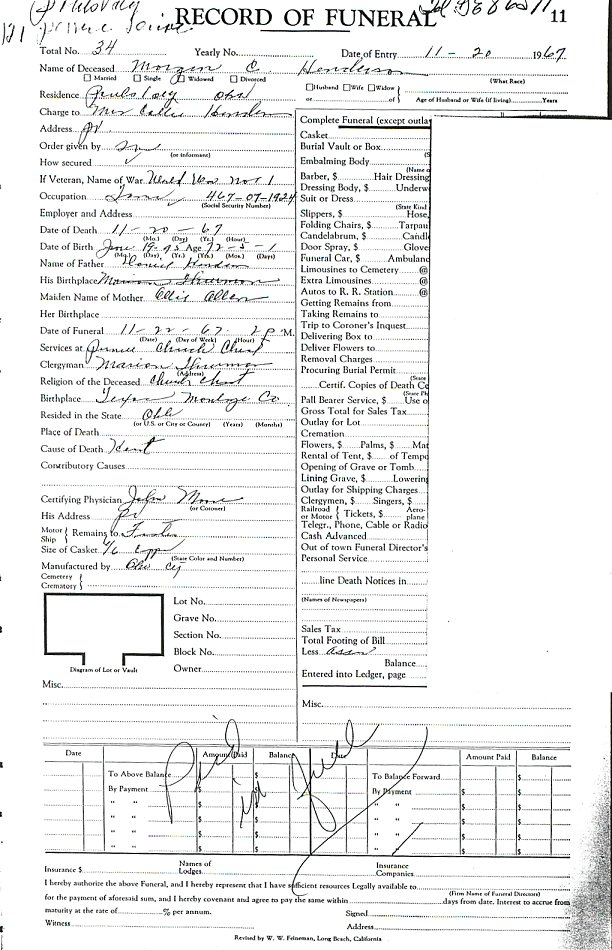 RECORD OF FUNERAL 11
Total No. 34 Yearly No. Date of Entry 11 - 20 1967
Name of Deceased Morgan C. Henderson
Married Single Widowed Divorced
(What Race)
Residence Okla
Husband Wife Widow
or or Age of Husband or Wife (if living) Years
Charge to Mrs Callie
Address
Order given by
(or informant)
How secured
If Veteran, Name of War World War No 1
Occupation 467-07-1924
(Social Security Number)
Employer and Address
Date of Death 11 - 20 - 67
(Mo.) (Day) (Yr.) (Hour)
Date of Birth June 19-95 Age 72-5-1
(Mo.) (Day) (Yr.) (Yrs.) (Mos.) (Days)
Name of Father
His Birthplace
Maiden Name of Mother Allen
Her Birthplace
Date of Funeral 11 - 22 - 67 2 P M.
(Date) (Day of Week) (Hour)
Services at Church Christ
Clergyman Marion
(Address)
Religion of the Deceased Church Christ
Birthplace Texas Montage Co
Resided in the State Okla
(or U.S. or City or County) (Years) (Months)
Place of Death
Cause of Death Heart
Contributory Causes
Certifying Physician John Moore
(or Coroner)
His Address
Motor Ship } Remains to
Size of Casket 6/6
(State Color and Number)
Manufactured by Okla Cy
Cemetery
Crematory }
Lot No.
Grave No.
Section No.
Block No.
Owner
Diagram of Lot or Vault
Misc.
Complete Funeral (except outla
Casket
Burial Vault or Box
(S
Embalming Body
(Name o
Barber, $ Hair Dressing
Dressing Body, $ Underw
Suit or Dress
(State Kind
Slippers, $ Hose,
Folding Chairs, $ Tarpau
Candelabrum, $ Candl
Door Spray, $ Glove
Funeral Car, $ Ambulanc
Limousines to Cemetery @
Extra Limousines @
Autos to R. R. Station @
Getting Remains from
Taking Remains to
Trip to Coroner's Inquest
Delivering Box to
Deliver Flowers to
Removal Charges
Procuring Burial Permit
(State
Certif. Copies of Death Ce
(State Ph
Pall Bearer Service, $ Use o
Gross Total for Sales Tax
Outlay for Lot
Cremation
Flowers, $ Palms, $ Mat
Rental of Tent, $ of Tempo
Opening of Grave or Tomb
Lining Grave, $ Lowering
Outlay for Shipping Charges
Clergymen, $ Singers, $
Railroad or Motor } Tickets, $ Aero-plane
Telegr., Phone, Cable or Radio
Cash Advanced
Out of town Funeral Director's
Personal Service
line Death Notices in
(Names of Newspapers)
Sales Tax
Total Footing of Bill
Less Assn
Balance
Entered into Ledger, page
Misc.
Date Amount Paid Balance Date Amount Paid Balance
To Above Balance $ $ To Balance Forward $ $
By Payment $ $ By Payment $ $
" " $ $ " " $ $
" " $ $ " " $ $
" " $ $ " " $ $
" " $ $ " " $ $
Paid in Full
Insurance $ Names of Lodges Insurance Companies
I hereby authorize the above Funeral, and I hereby represent that I have sufficient resources Legally available to
(Firm Name of Funeral Directors)
for the payment of aforesaid sum, and I hereby covenant and agree to pay the same within days from date. Interest to accrue from
maturity at the rate of % per annum. Signed
Witness Address
Revised by W. W. Feineman, Long Beach, California